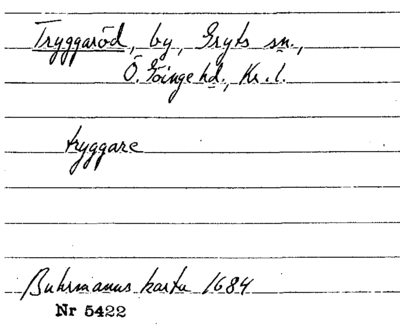 Tryggaröd, by, Gryts sn.,
Ö. Göinge hd., Kr. l.
tryggare
Buhrmanns karta 1684
Nr 5422